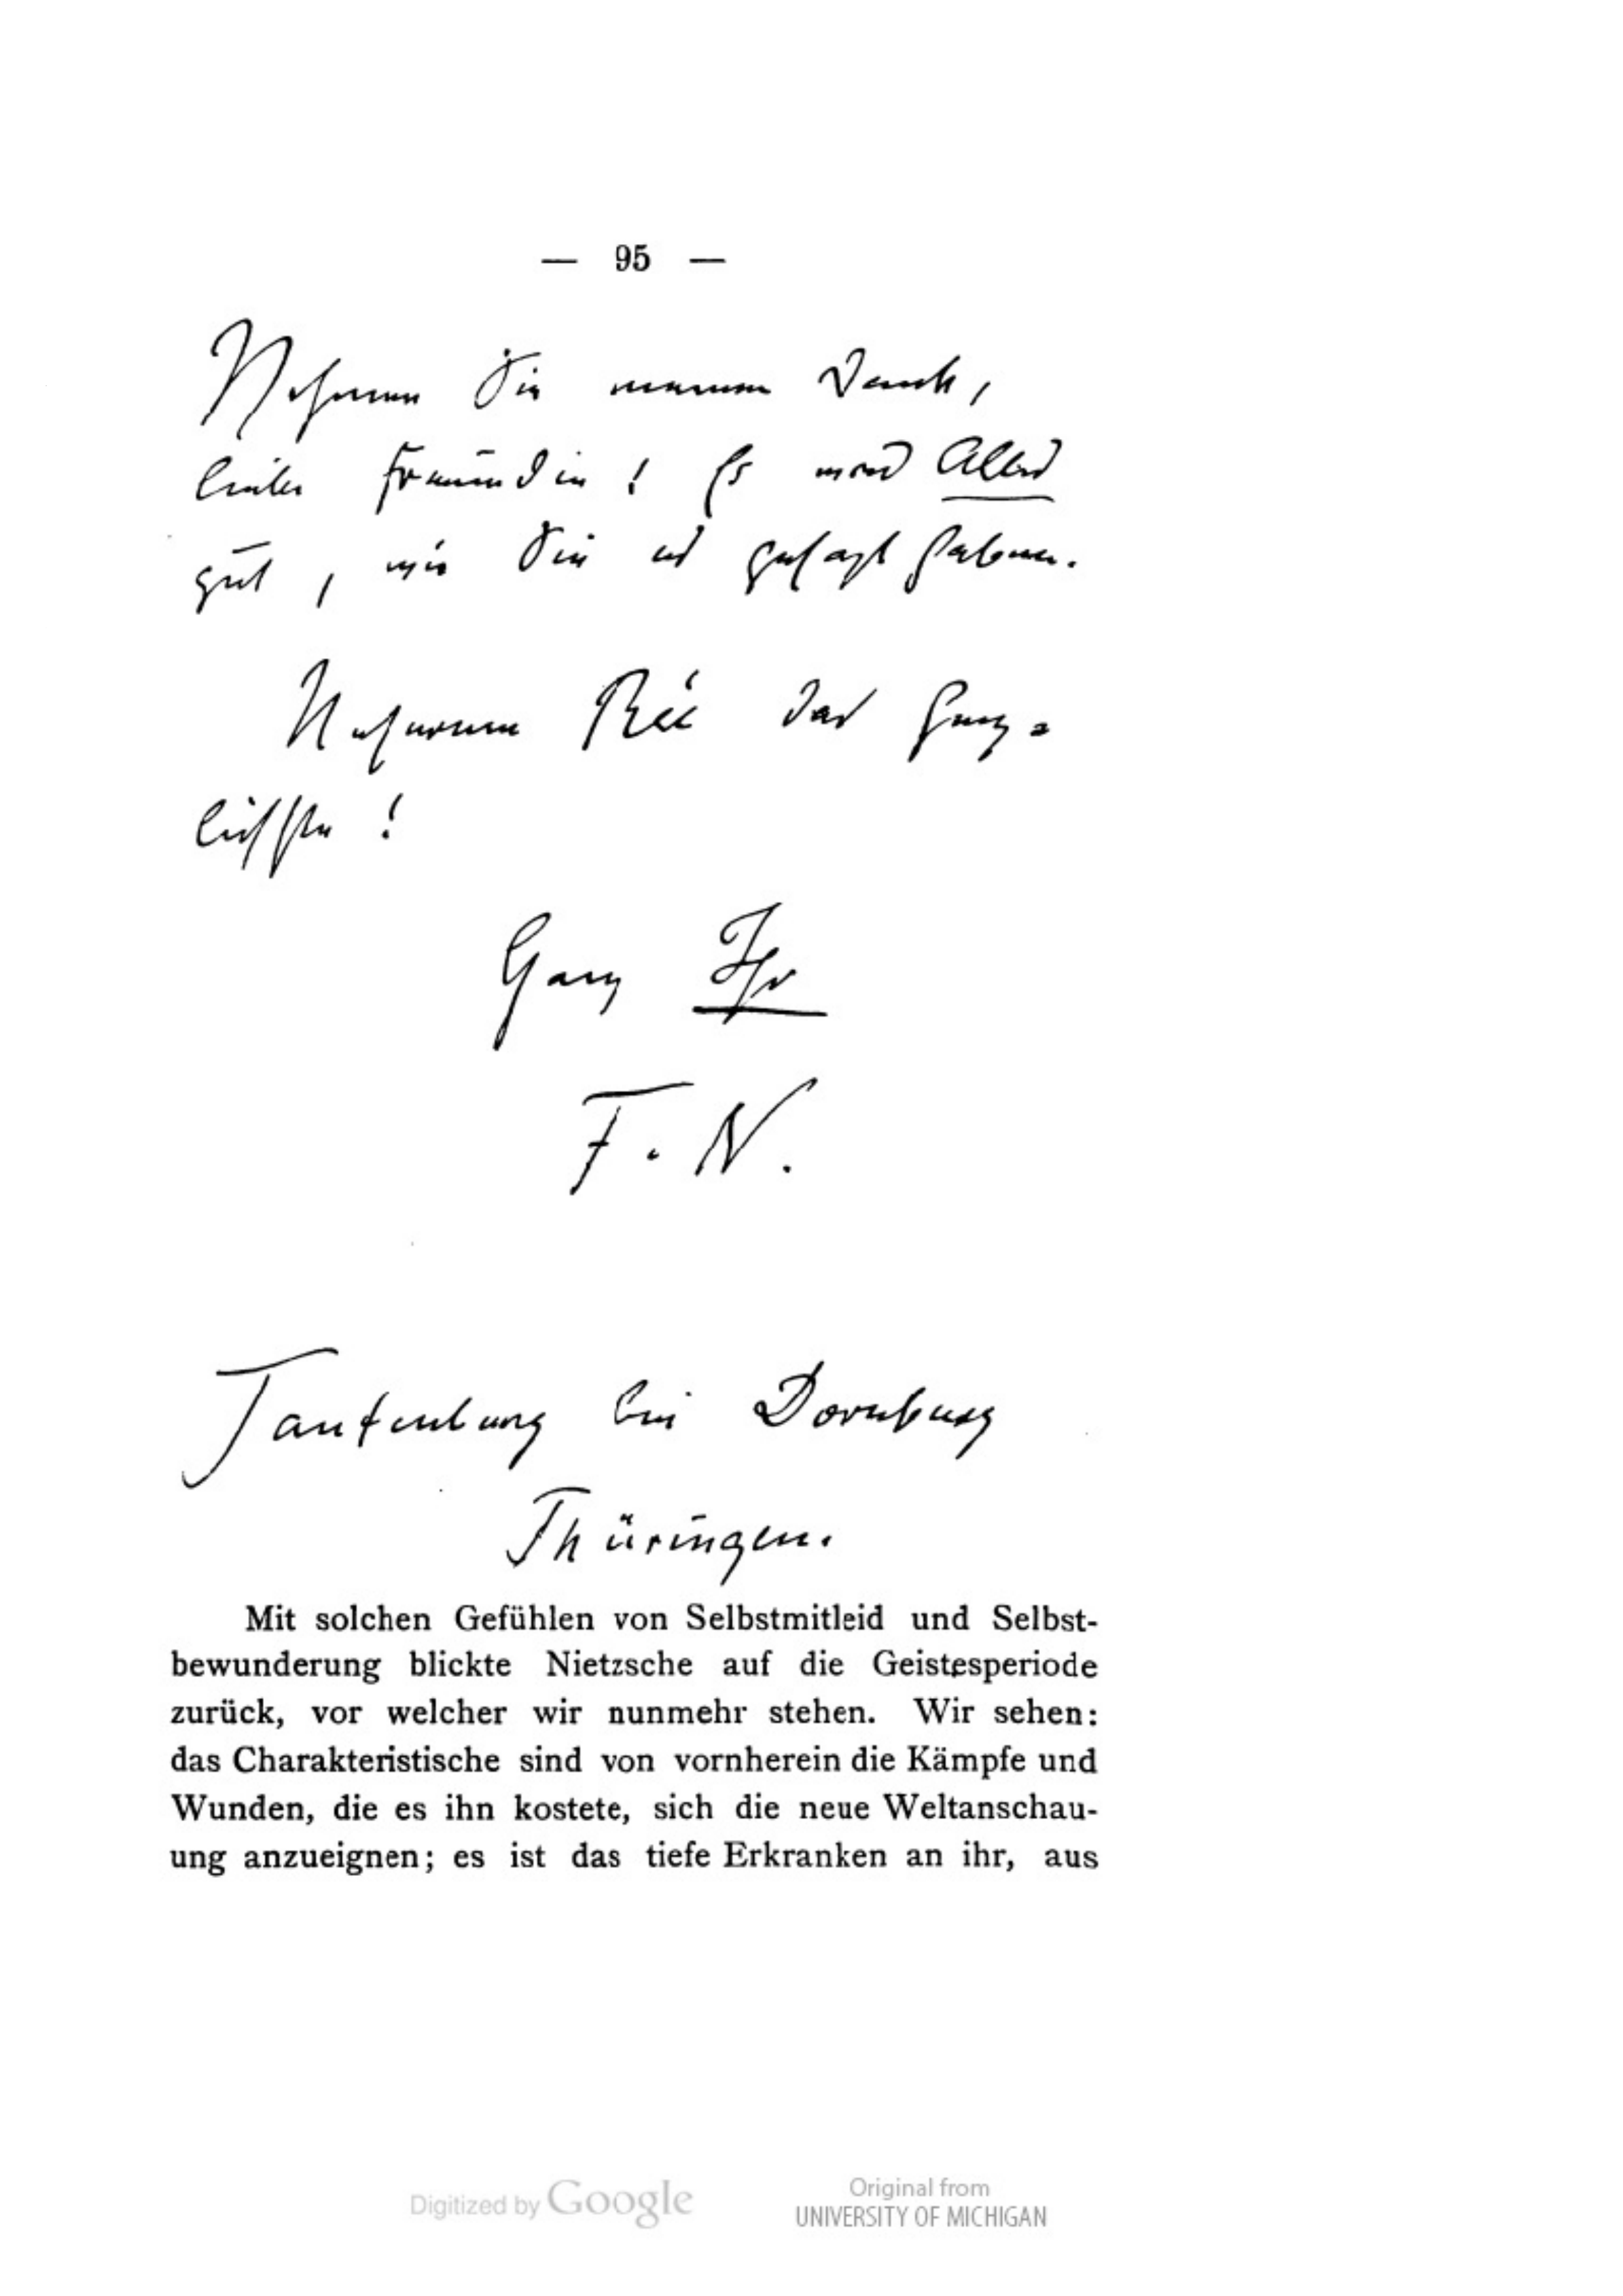 — 95 —
Nehmen Sie meinen Dank,
liebe Freundin! Es wird Alles
gut, wie Sie es gesagt haben.
Unserem Rée das Herz=
lichste!
Ganz Ihr
F. N.
Tautenburg bei Dornburg
Thüringen.
Mit solchen Gefühlen von Selbstmitleid und Selbst-
bewunderung blickte Nietzsche auf die Geistesperiode
zurück, vor welcher wir nunmehr stehen. Wir sehen:
das Charakteristische sind von vornherein die Kämpfe und
Wunden, die es ihn kostete, sich die neue Weltanschau-
ung anzueignen; es ist das tiefe Erkranken an ihr, aus
Digitized by Google
Original from
UNIVERSITY OF MICHIGAN